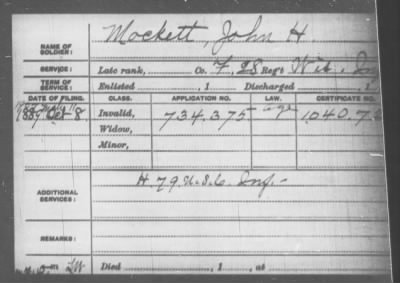 Mockett, John H.
NAME OF SOLDIER:
SERVICE: Late rank, Co. F, 28 Reg't Wis. Inf
TERM OF SERVICE: Enlisted , 1 Discharged , 1
DATE OF FILING. CLASS. APPLICATION NO. LAW. CERTIFICATE NO.
1889 Oct 8. Invalid, 734.375 age 1.040.7
Widow,
Minor,
ADDITIONAL SERVICES: H. 79. U.S.C. Inf.
REMARKS:
Died , 1 , at